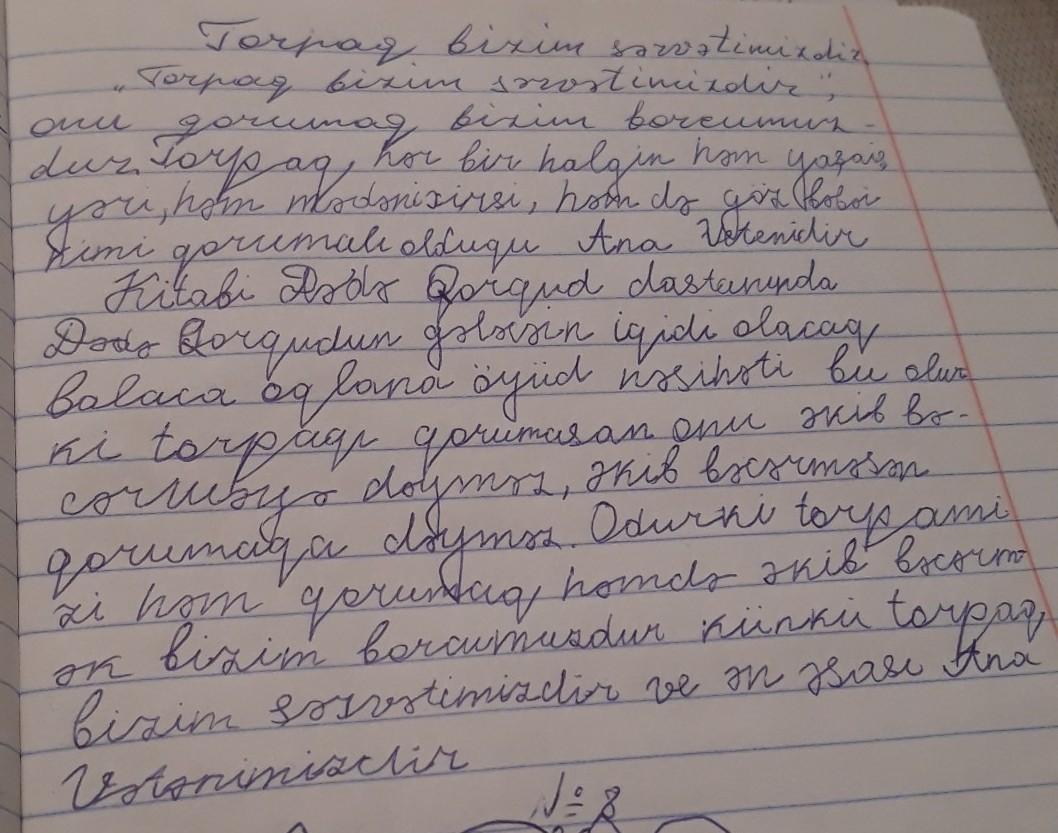 Torpaq bizim sərvətimizdir
„Torpaq bizim sərvətimizdir",
onu qorumaq bizim borcumuz-
dur. Torpaq, hər bir halqin həm yaşaış
yəri, həm mədənixirsi, həm də göz bəbəi
kimi qorumalı olduqu Ana Vətenidir
Kitabi Dədə Qorqud dastanında
Dədə Qorqudun gələcəin iqidi olacaq
balaca oqlana öyüd nəsihəti bu olur
ki torpaqı qorumasan onu əkib be-
cərməyə dəyməz, əkib becərməsən
qorumaqa dəyməz. Odurki torpami
zi həm qorumaq, həmdə əkib becərm
ək bizim borcumuzdur künkü torpaq,
bizim sərvətimizdir ve ən əsası Ana
Vətənimizdir
№ 8